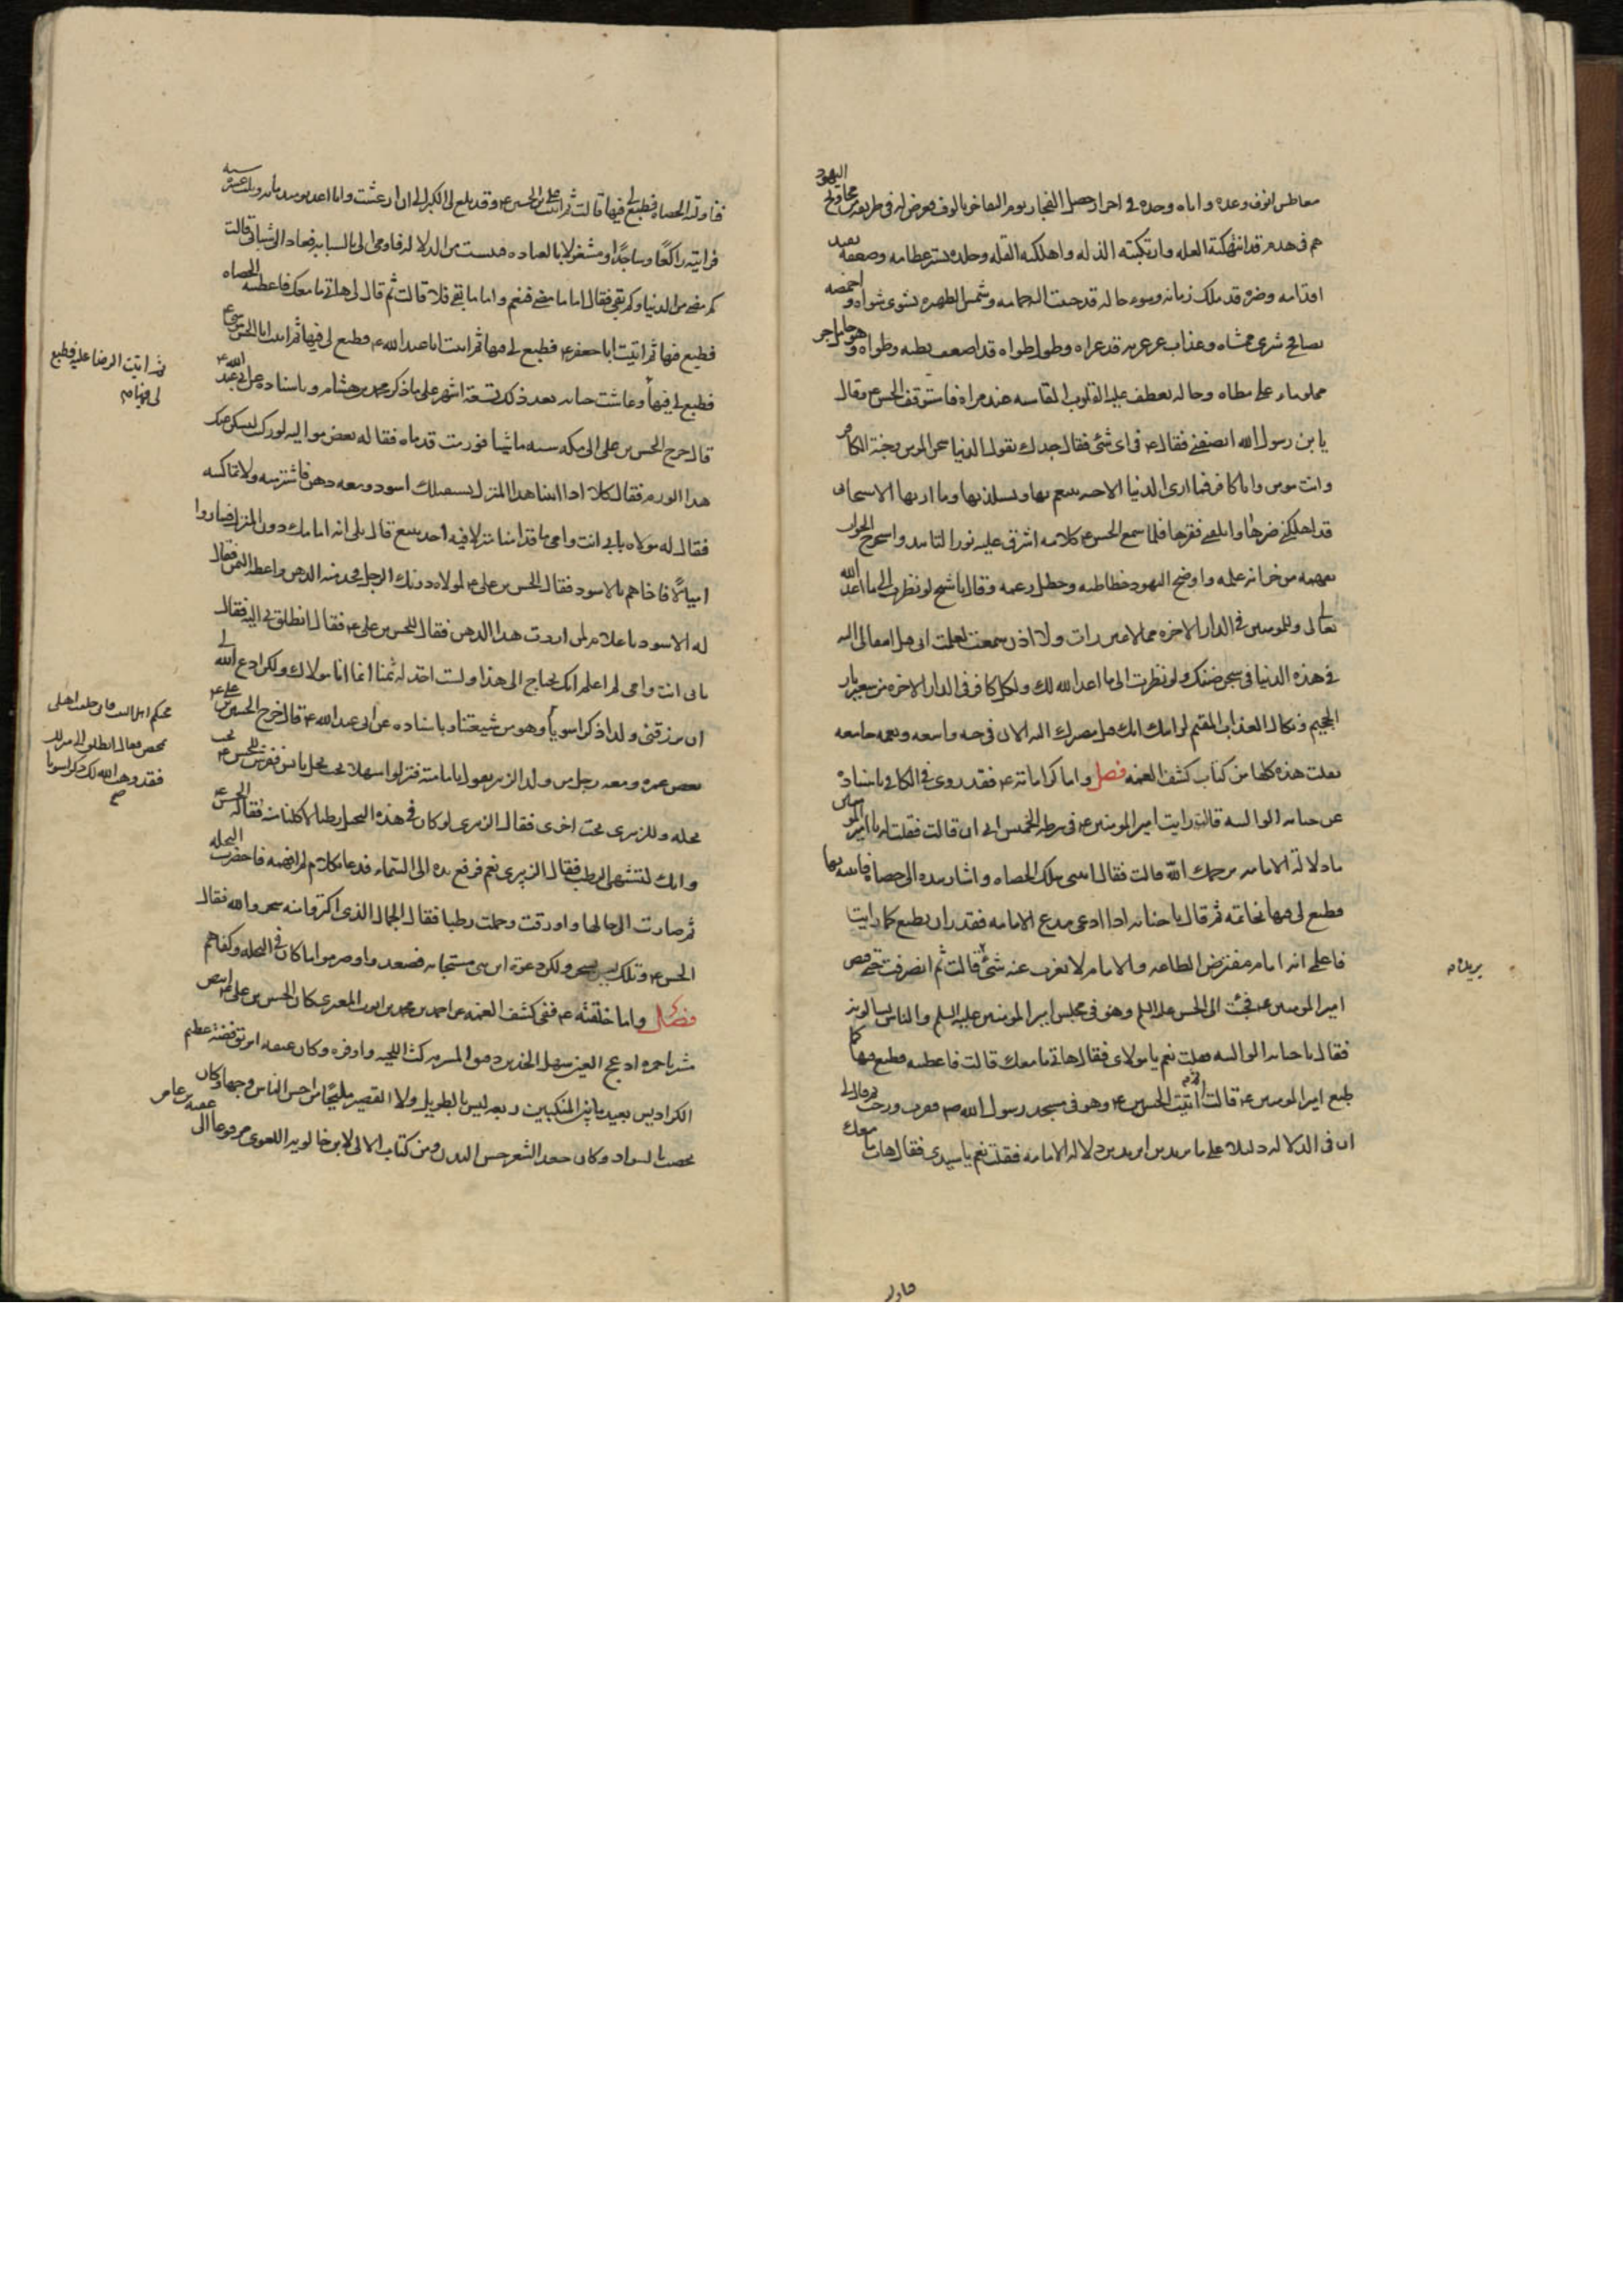 معاطس انوف وعده واماه وحده فى طريقه من محاويج اليهود
هم فى هدم قد انهكته العله وارتكبته الذله واهلكته القله وجلده يستر عظامه وضعفه يقيد
اقدامه وضره قد ملك زمانه وسوء حاله قد حبب اليه حمامه وشمس الظهيره تشوى شواه واخمصه
يصافح ثرى ممشاه وعذاب عرعريه قد عراه وطول طواه قد اضعف بطنه وطواه وهو حامل جر
مملو ماء على مطاه وحاله يعطف عليه القلوب القاسيه عند مراه فاستوقف الحسن ع وقال
يا بن رسول الله انصفنى فقال ع فى اى شئ فقال جدك يقول الدنيا سجن المومن وجنة الكافر
وانت مومن وانا كافر فما ارى الدنيا الا جنه تتنعم بها وتستلذ بها وما اريها الا سجنا لى
قد اهلكنى ضرها واتلفنى فقرها فلما سمع الحسن ع كلامه اشرق عليه نور التاييد واستخرج الجواب
بفهمه من خزانة علمه واوضح لليهود خطا ظنه وخطل زعمه وقال يا شيخ لو نظرت الى ما اعد الله
تعالى لى وللمومنين فى الدار الاخره مما لا عين رات ولا اذن سمعت لعلمت انى قبل انتقالى اليه
فى هذه الدنيا فى سجن ضنك ولو نظرت الى ما اعد الله لك ولكل كافر فى الدار الاخره من سعير نار
الجحيم ونكال العذاب المقيم لرايت انك قبل مصيرك اليه الان فى جنه واسعه ونعمه جامعه
نقلت هذه كلها من كتاب كشف الغمه فصل واما كراماته ع فقد روى فى الكافى باسناده
عن حبابه الوالبيه قالت رايت امير المومنين ع فى شرطة الخميس الى ان قالت فقلت له يا امير المومنين
ما دلالة الامامه يرحمك الله قالت فقال ائتينى بتلك الحصاه واشار بيده الى حصاه فاتيته بها
فطبع لى فيها بخاتمه ثم قال يا حبابه اذا ادعى مدع الامامه فقدر ان يطبع كما رايت
فاعلمى انه امام مفترض الطاعه والامام لا يعزب عنه شئ قالت ثم انصرفت حتى قبض
امير المومنين ع فجئت الى الحسن عليه السلم وهو فى مجلس امير المومنين عليه السلم والناس يسالونه
فقال يا حبابه الوالبيه فقلت نعم يا مولاى فقال هاتى ما معك قالت فاعطيته فطبع فيها كما
طبع امير المومنين ع قالت ثم اتيت الحسين ع وهو فى مسجد رسول الله ص فقرب ورحب ثم قال لى
ان فى الدلاله دليلا على ما تريدين افتريدين دلاله الامامه فقلت نعم يا سيدى فقال هات ما معك
يريده م
فناولته الحصاه فطبع لى فيها قالت ثم اتيت على بن الحسين ع وقد بلغ لى الكبر الى ان ارعشت وانا اعد يومئذ مايه وثلث عشر سنه
فرايته راكعا وساجدا ومشغولا بالعباده فيئست من الدلاله فاومى الى بالسبابه فعاد الى شبابى قالت
كم مضى من الدنيا وكم بقى فقال اما ما مضى فنعم واما ما بقى فلا قالت ثم قال لى هاتى ما معك فاعطيته الحصاه
فطبع فيها ثم اتيت ابا جعفر ع فطبع لى فيها ثم اتيت ابا عبد الله ع فطبع لى فيها ثم اتيت ابا الحسن موسى ع
فطبع لى فيها وعاشت حبابه بعد ذلك تسعة اشهر على ما ذكر محمد بن هشام وباسناده عن ابى عبد الله ع
قال خرج الحسن بن على الى مكه سنه ماشيا فورمت قدماه فقال له بعض مواليه لو ركبت ليسكن عنك
هذا الورم فقال كلا اذا اتينا هذا المنزل يستقبلك اسود ومعه دهن فاشتر منه ولا تماكسه
فقال له مولاه بابى انت وامى ما قد امنا منزلا فيه احد يبيع قال بلى انه امامك دون المنزل فساروا
اميالا فاذا هم بالاسود فقال الحسن بن على ع لمولاه دونك الرجل فخذ منه الدهن واعطه الثمن فقال
له الاسود يا غلام لمن اردت هذا الدهن فقال للحسن بن على ع فقال انطلق بى اليه فقال
بابى انت وامى لم اعلم انك تحتاج الى هذا ولست اخذ له ثمنا انما انا مولاك ولكن ادع الله لى
ان يرزقنى ولدا ذكرا سويا وهو من شيعتنا وباسناده عن ابى عبد الله ع قال خرج الحسن بن على ع
بعض عمره ومعه رجل من ولد الزبير يقول بامامته فنزلوا منهلا تحت نخل يابس ففرش للحسن ع تحت
نخله وللزبيرى تحت اخرى فقال الزبيرى لو كان فى هذه النخل رطبا لاكلنا منه فقال له الحسن ع
وانك لتشتهى الرطب فقال الزبيرى نعم فرفع يده الى السماء فدعا بكلام لم افهمه فاخضرت النخله
ثم صارت الى حالها واورقت وحملت رطبا فقال الجمال الذى اكتروا منه سحر والله فقال
الحسن ع ويلك ليس بسحر ولكن دعوة ابن نبى مستجابه فصعد واوصرموا ما كان فى النخله وكفاهم
فصل واما خلقته ع ففى كشف الغمه عن احمد بن محمد بن ايوب المغيرى كان الحسن بن على ع ابيض
مشربا حمره ادعج العينين سهل الخدين دقيق المسربه كث اللحيه وافره وكان عنقه ابريق فضه عظيم
الكراديس بعيد ما بين المنكبين ربعه ليس بالطويل ولا القصير مليحا من احسن الناس وجها وكان
يخضب بالسواد وكان جعد الشعر حسن البدن ومن كتاب الالى لابن خالويه اللغوى مرفوعا الى عقبه بن عامر
ثم اتيت الرضا عليه فطبع
لى فيها م
فانى خلفت اهلى
تمخض فقال انطلق الى منزلك
فقد وهب الله لك ذكرا سويا
صح
فناولته